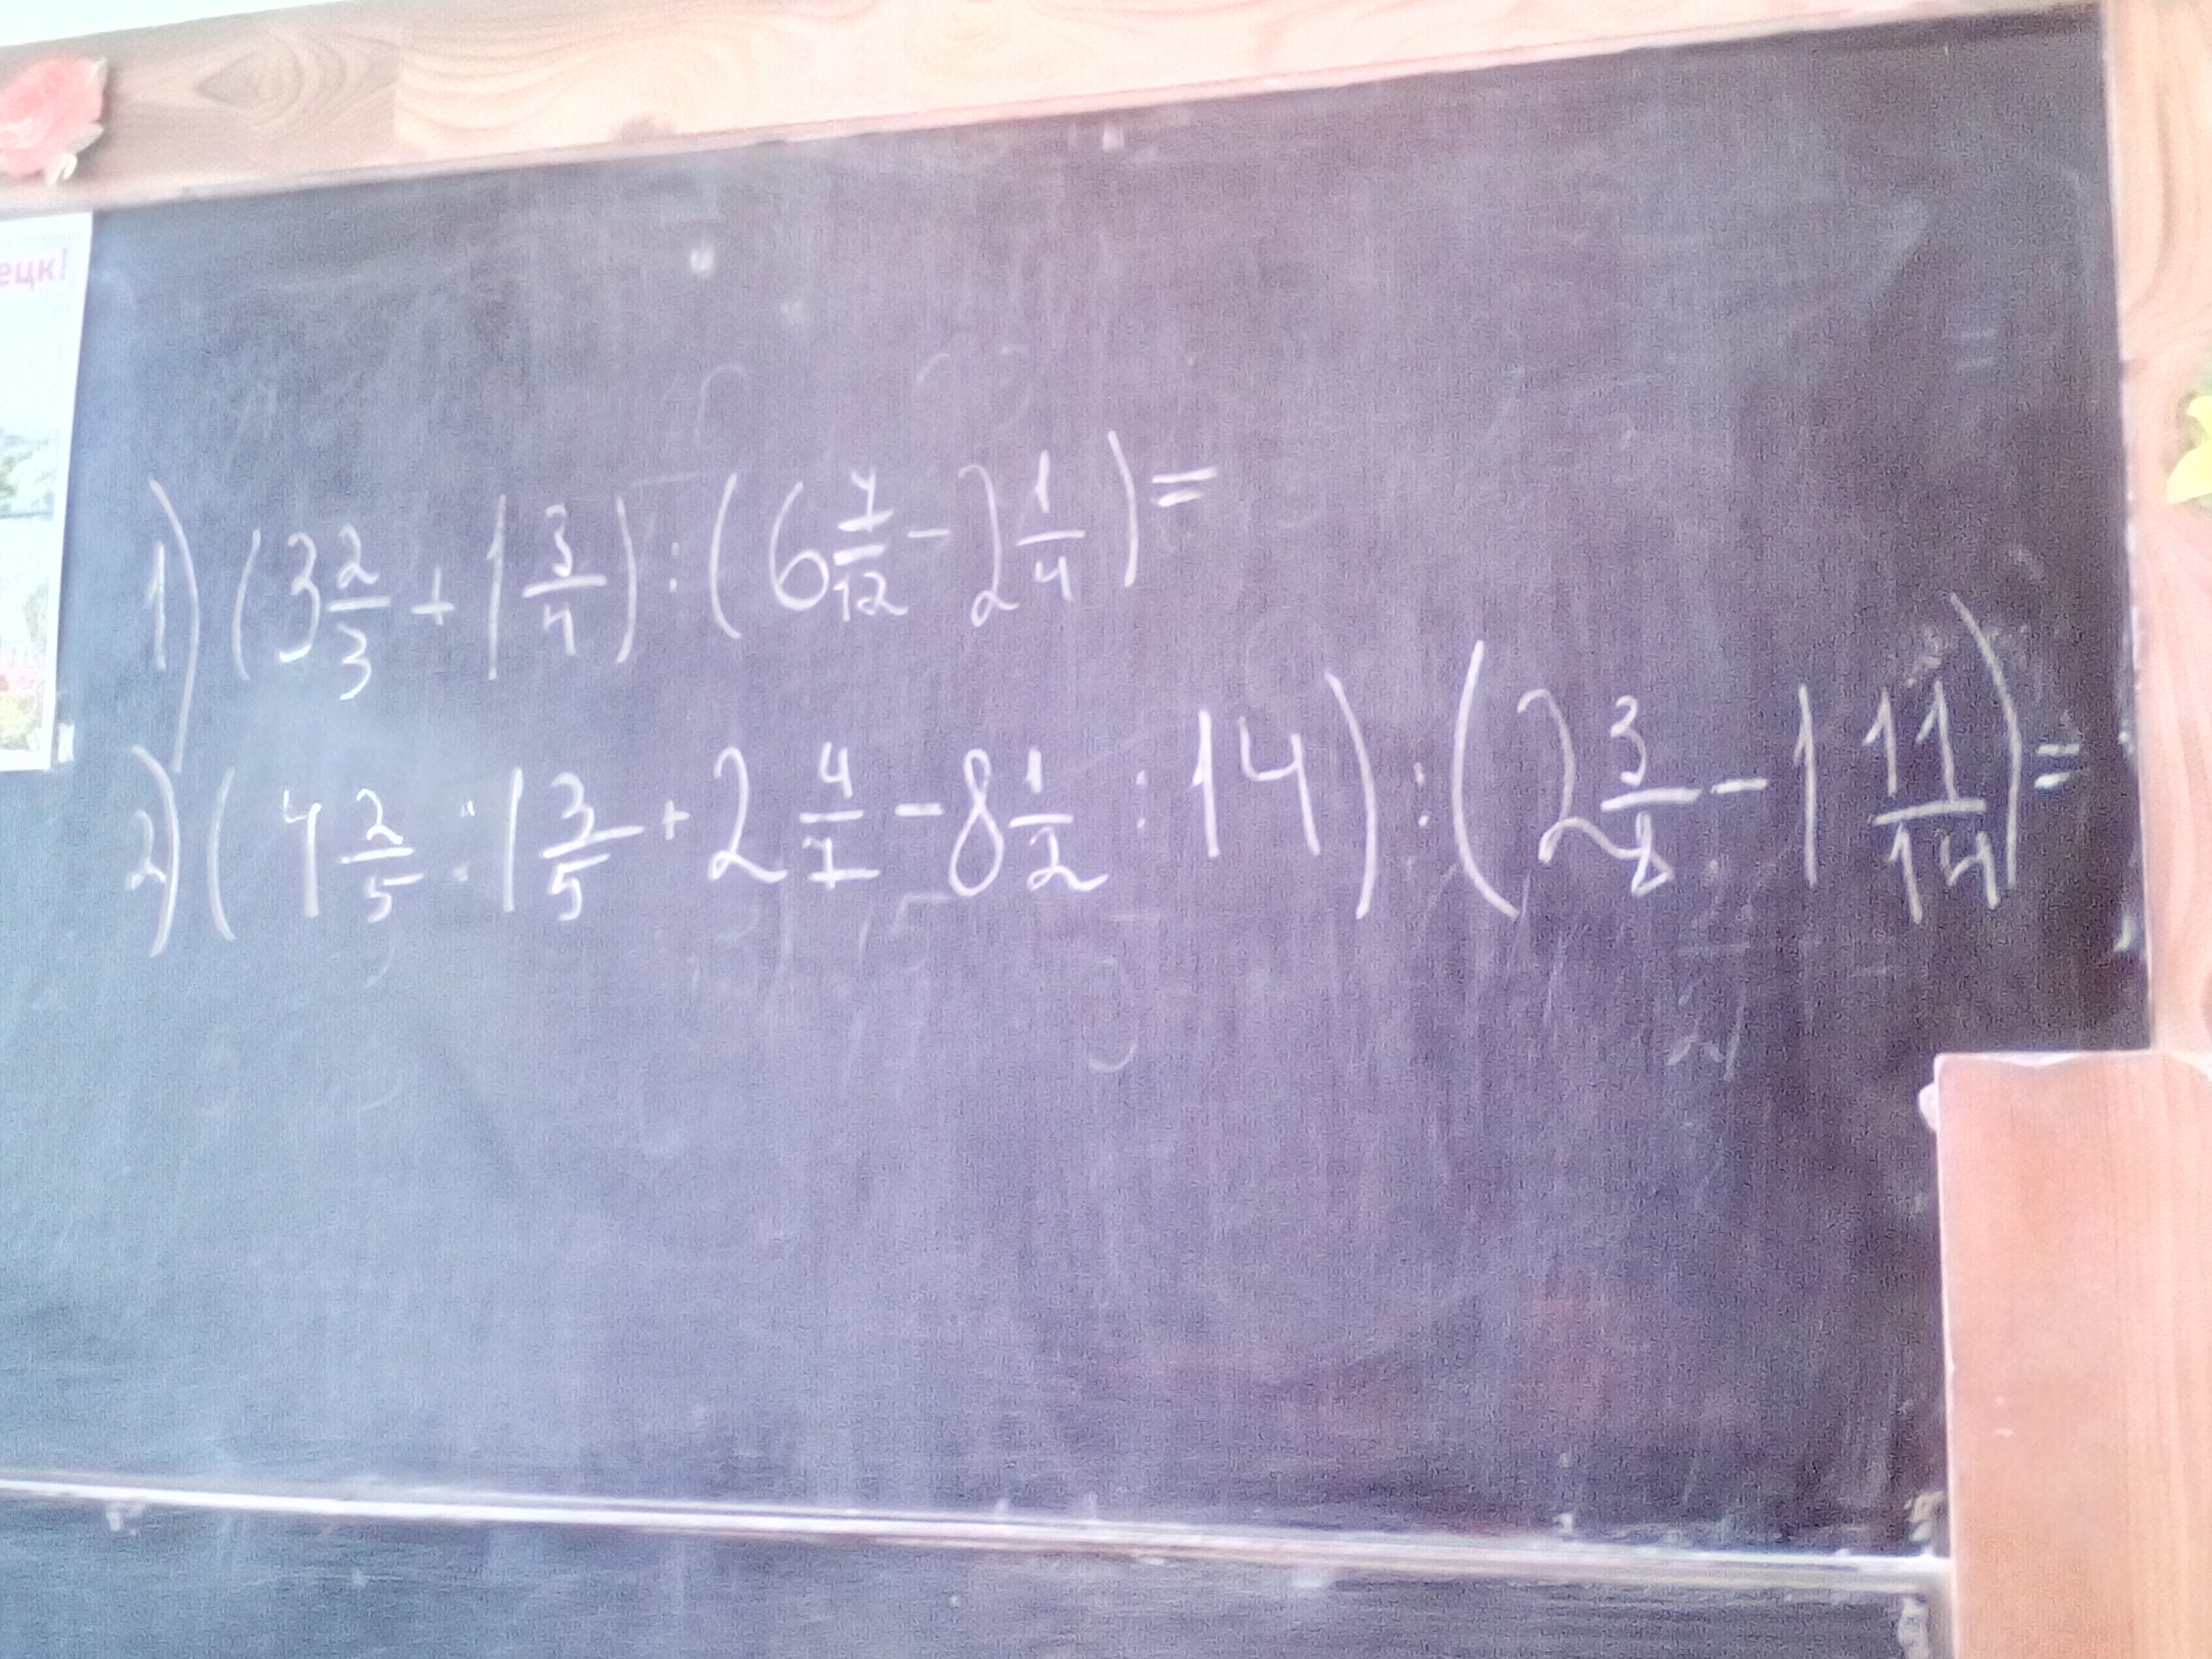 ецк!
1) (3 2/3 + 1 3/4) : (6 7/12 - 2 1/4) =
2) (4 2/5 : 1 3/5 + 2 4/7 - 8 1/2 : 14) : (2 3/8 - 1 11/14) =